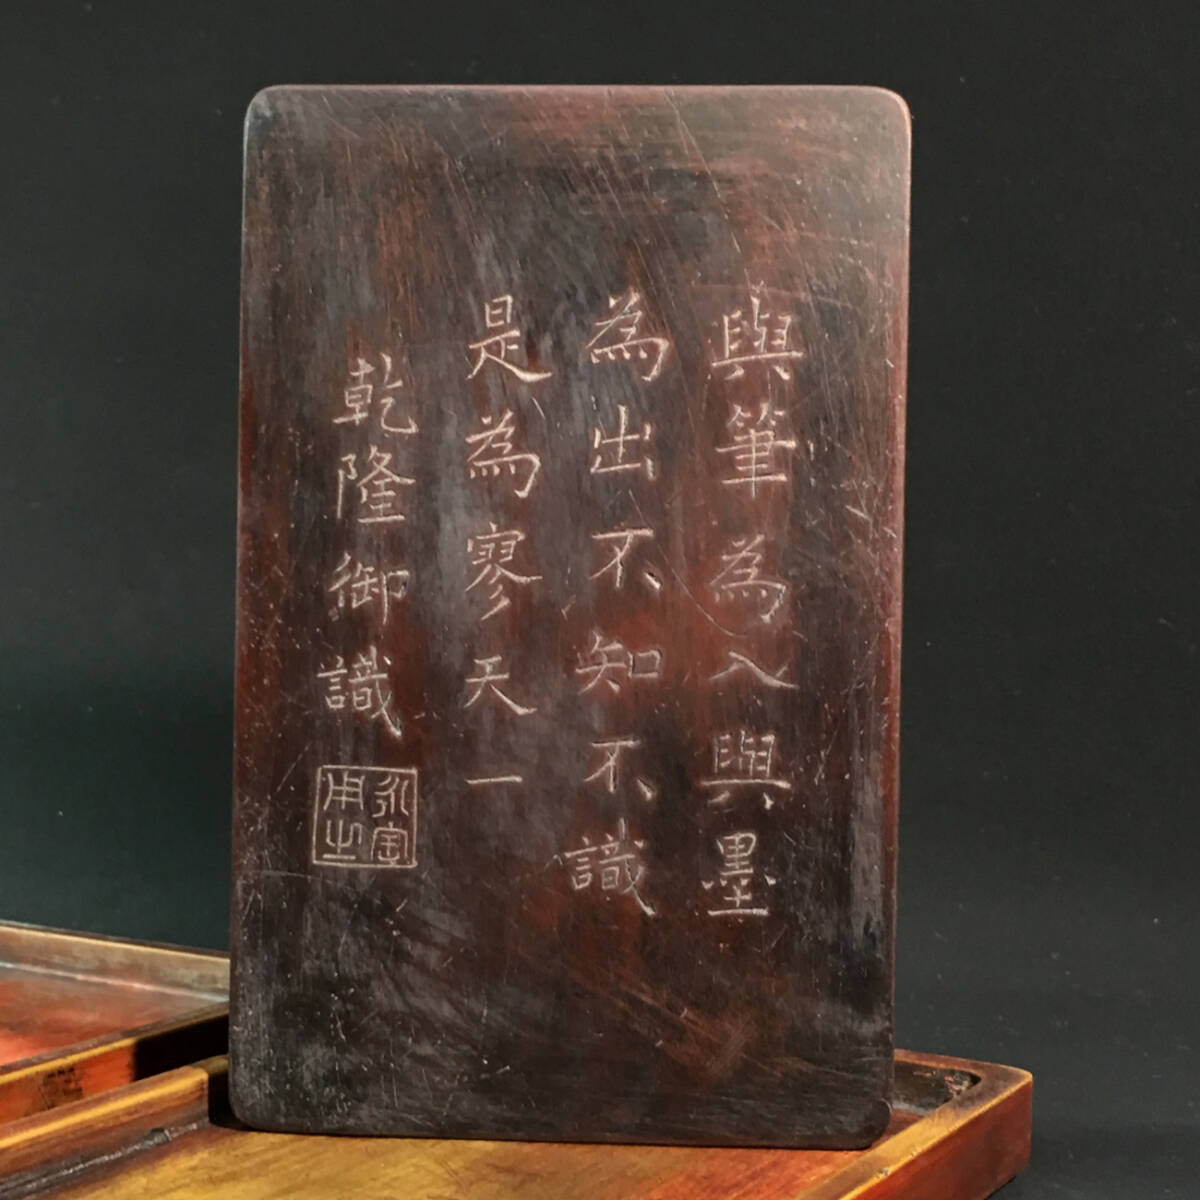 與筆為入與墨
為出不知不識
是為寥天一
乾隆御識
永宝用之